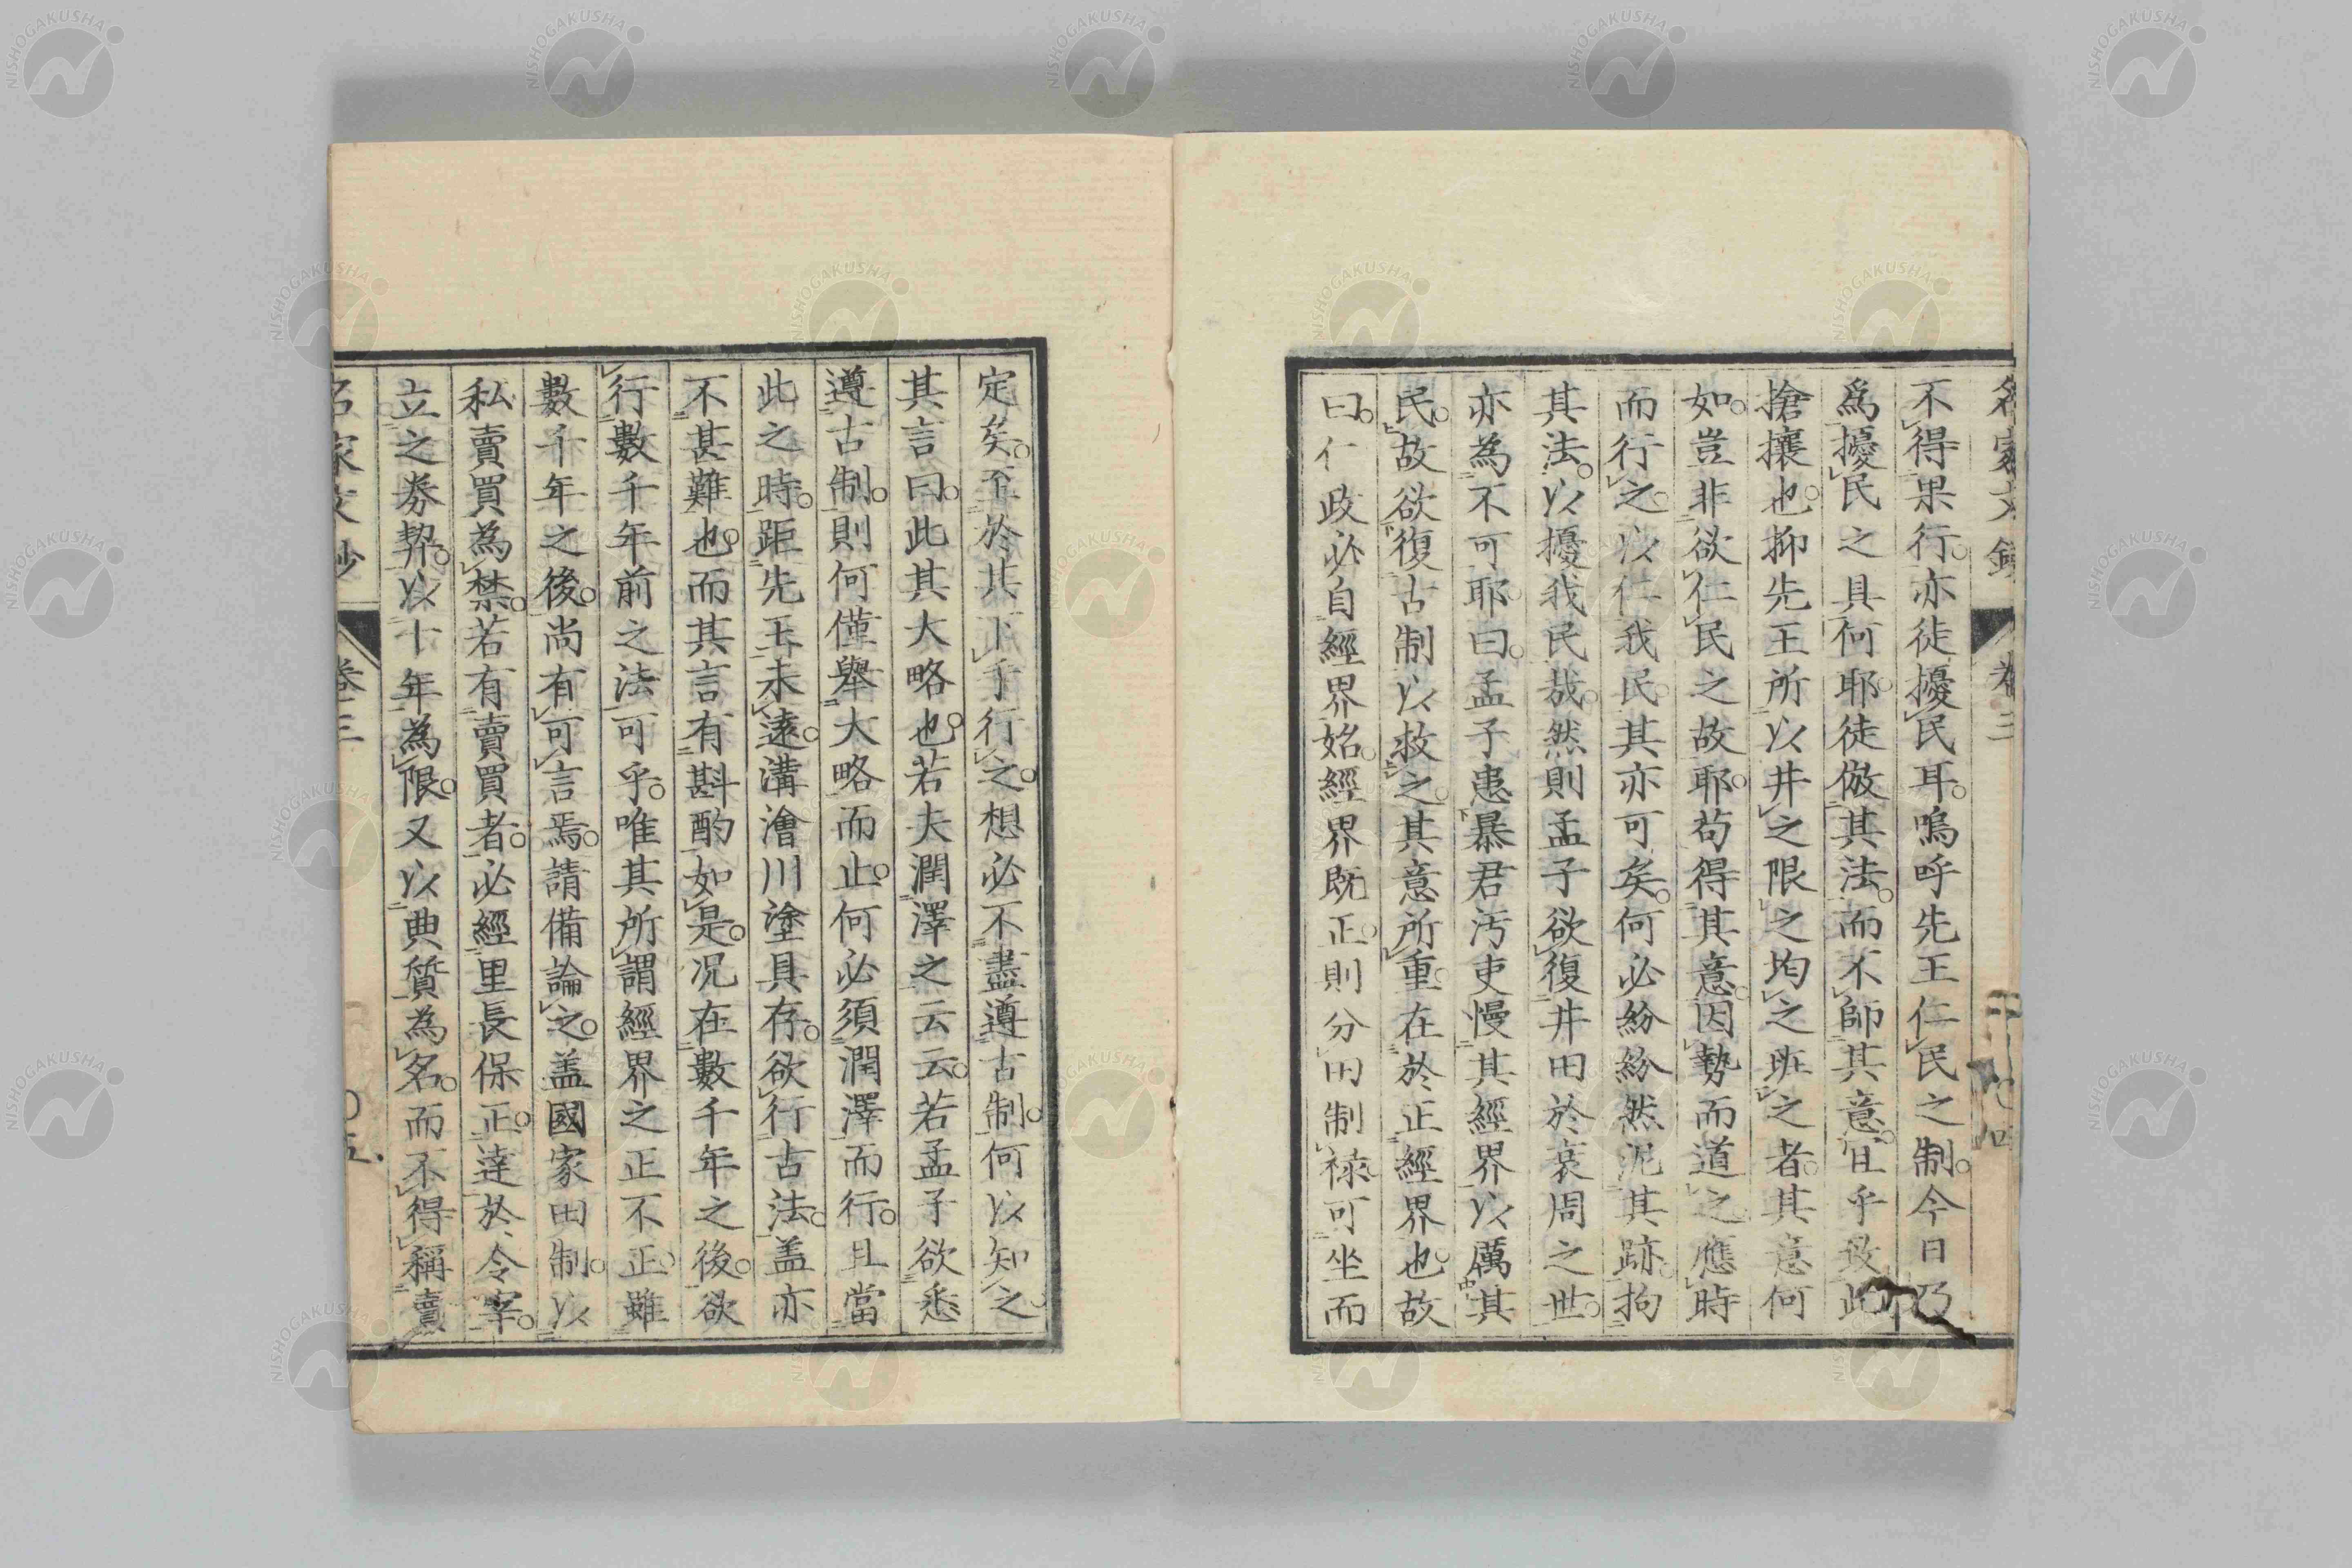 不得果行。亦徒擾民耳。嗚呼先王仁民之制。今日乃
爲擾民之具何耶。徒倣其法。而不師其意。
搶攘也。抑先王所以井之限之均之班之者。其意何
如。豈非欲仁民之故耶。苟得其意。因勢而道之。應時
而行之。以仁我民。其亦可矣。何必紛紛然泥其跡。拘
其法。以擾我民哉。然則孟子欲復井田於衰周之世。
亦為不可耶。曰。孟子患暴君汚吏慢其經界以厲其
民。故欲復古制以救之。其意所重。在於正經界也。故
曰。仁政必自經界始。經界既正。則分田制祿可坐而
定矣。至於其下手行之。想必不盡遵古制。何以知之。
其言曰。此其大略也。若夫潤澤之云云。若孟子欲悉
遵古制。則何僅舉大略而止。何必須潤澤而行。且當
此之時。距先王未遠。溝澮川塗具存。欲行古法。盖亦
不甚難也。而其言有斟酌如是。况在數千年之後。欲
行數千年前之法可乎。唯其所謂經界之正不正。雖
數千年之後。尚有可言焉。請備論之。盖國家田制。以
私賣買為禁。若有賣買者。必經里長保正。達於令宰。
立之券契。以十年為限。又以典質為名。而不得稱賣
卷三